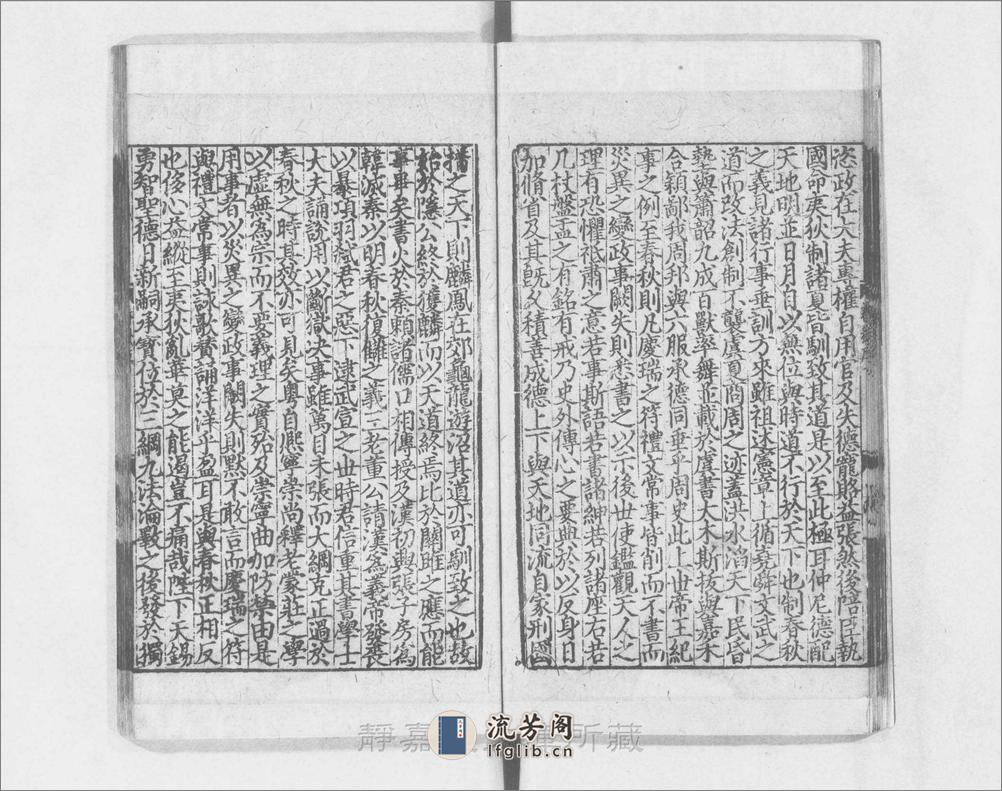 恣政在大夫專權自用官及失德寵賂益張然後陪臣執
國命夷狄制諸夏皆馴致其道是以至此極耳仲尼德配
天地明並日月自以無位與時道不行於天下也制春秋
之義見諸行事垂訓方來雖祖述憲章上循堯舜文武之
道而改法創制不襲虞夏商周之迹蓋洪水滔天下民昏
墊與簫韶九成百獸率舞並載於虞書大木斯拔與嘉禾
合穎鄙我周邦與六服承德同垂乎周史此上世帝王紀
事之例至春秋則凡慶瑞之符禮文常事皆削而不書而
災異之變政事闕失則悉書之以示後世使鑑觀天人之
理有恐懼祗肅之意若事斯語若書諸紳若列諸座右若
几杖盤盂之有銘有戒乃史外傳心之要典於以反身日
加脩省及其旣久積善成德上下與天地同流自家刑國
措之天下則麟鳳在郊龜龍遊沼其道亦可馴致之也故
始於隱公終於獲麟而以天道終焉比於關雎之應而能
事畢矣書火於秦賴諸儒口相傳授及漢初興張子房為
韓滅秦以明春秋復讎之義三老董公請漢為義帝發喪
以暴項羽弒君之惡下逮武宣之世時君信重其書學士
大夫誦說用以斷獄決事雖萬目未張而大綱克正過於
春秋之時其效亦可見矣粵自熙寧崇尚釋老蒙莊之學
以虛無為宗而不要義理之實殆及崇寧曲加防禁由是
用事者以災異之變政事闕失則默不敢言而慶瑞之符
與禮文常事則詠歌贊誦洋洋乎盈耳是與春秋正相反
也侈心益縱至夷狄亂華莫之能遏豈不痛哉陛下天錫
勇智聖德日新嗣承寶位於三綱九法淪斁之後發於獨
靜嘉堂文庫所藏
流芳阁
lfglib.cn